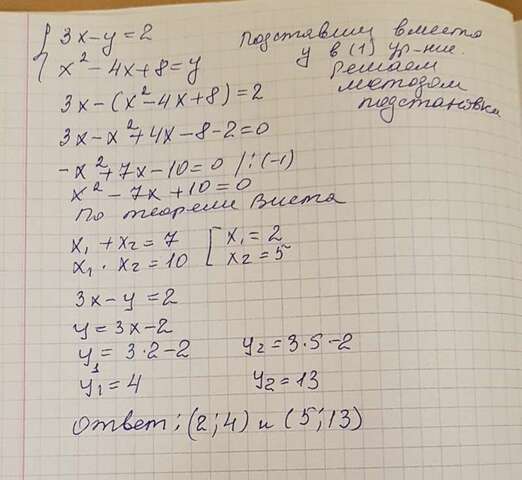 3x-y=2
x²-4x+8=y
Подставим вместо
y в (1) ур-ние.
Решаем
методом
подстановки
3x-(x²-4x+8)=2
3x-x²+4x-8-2=0
-x²+7x-10=0 /:(-1)
x²-7x+10=0
По теореме Виета
x₁+x₂=7 [ x₁=2
x₁·x₂=10 x₂=5
3x-y=2
y=3x-2
y₁=3·2-2 y₂=3·5-2
y₁=4 y₂=13
Ответ: (2;4) и (5;13)